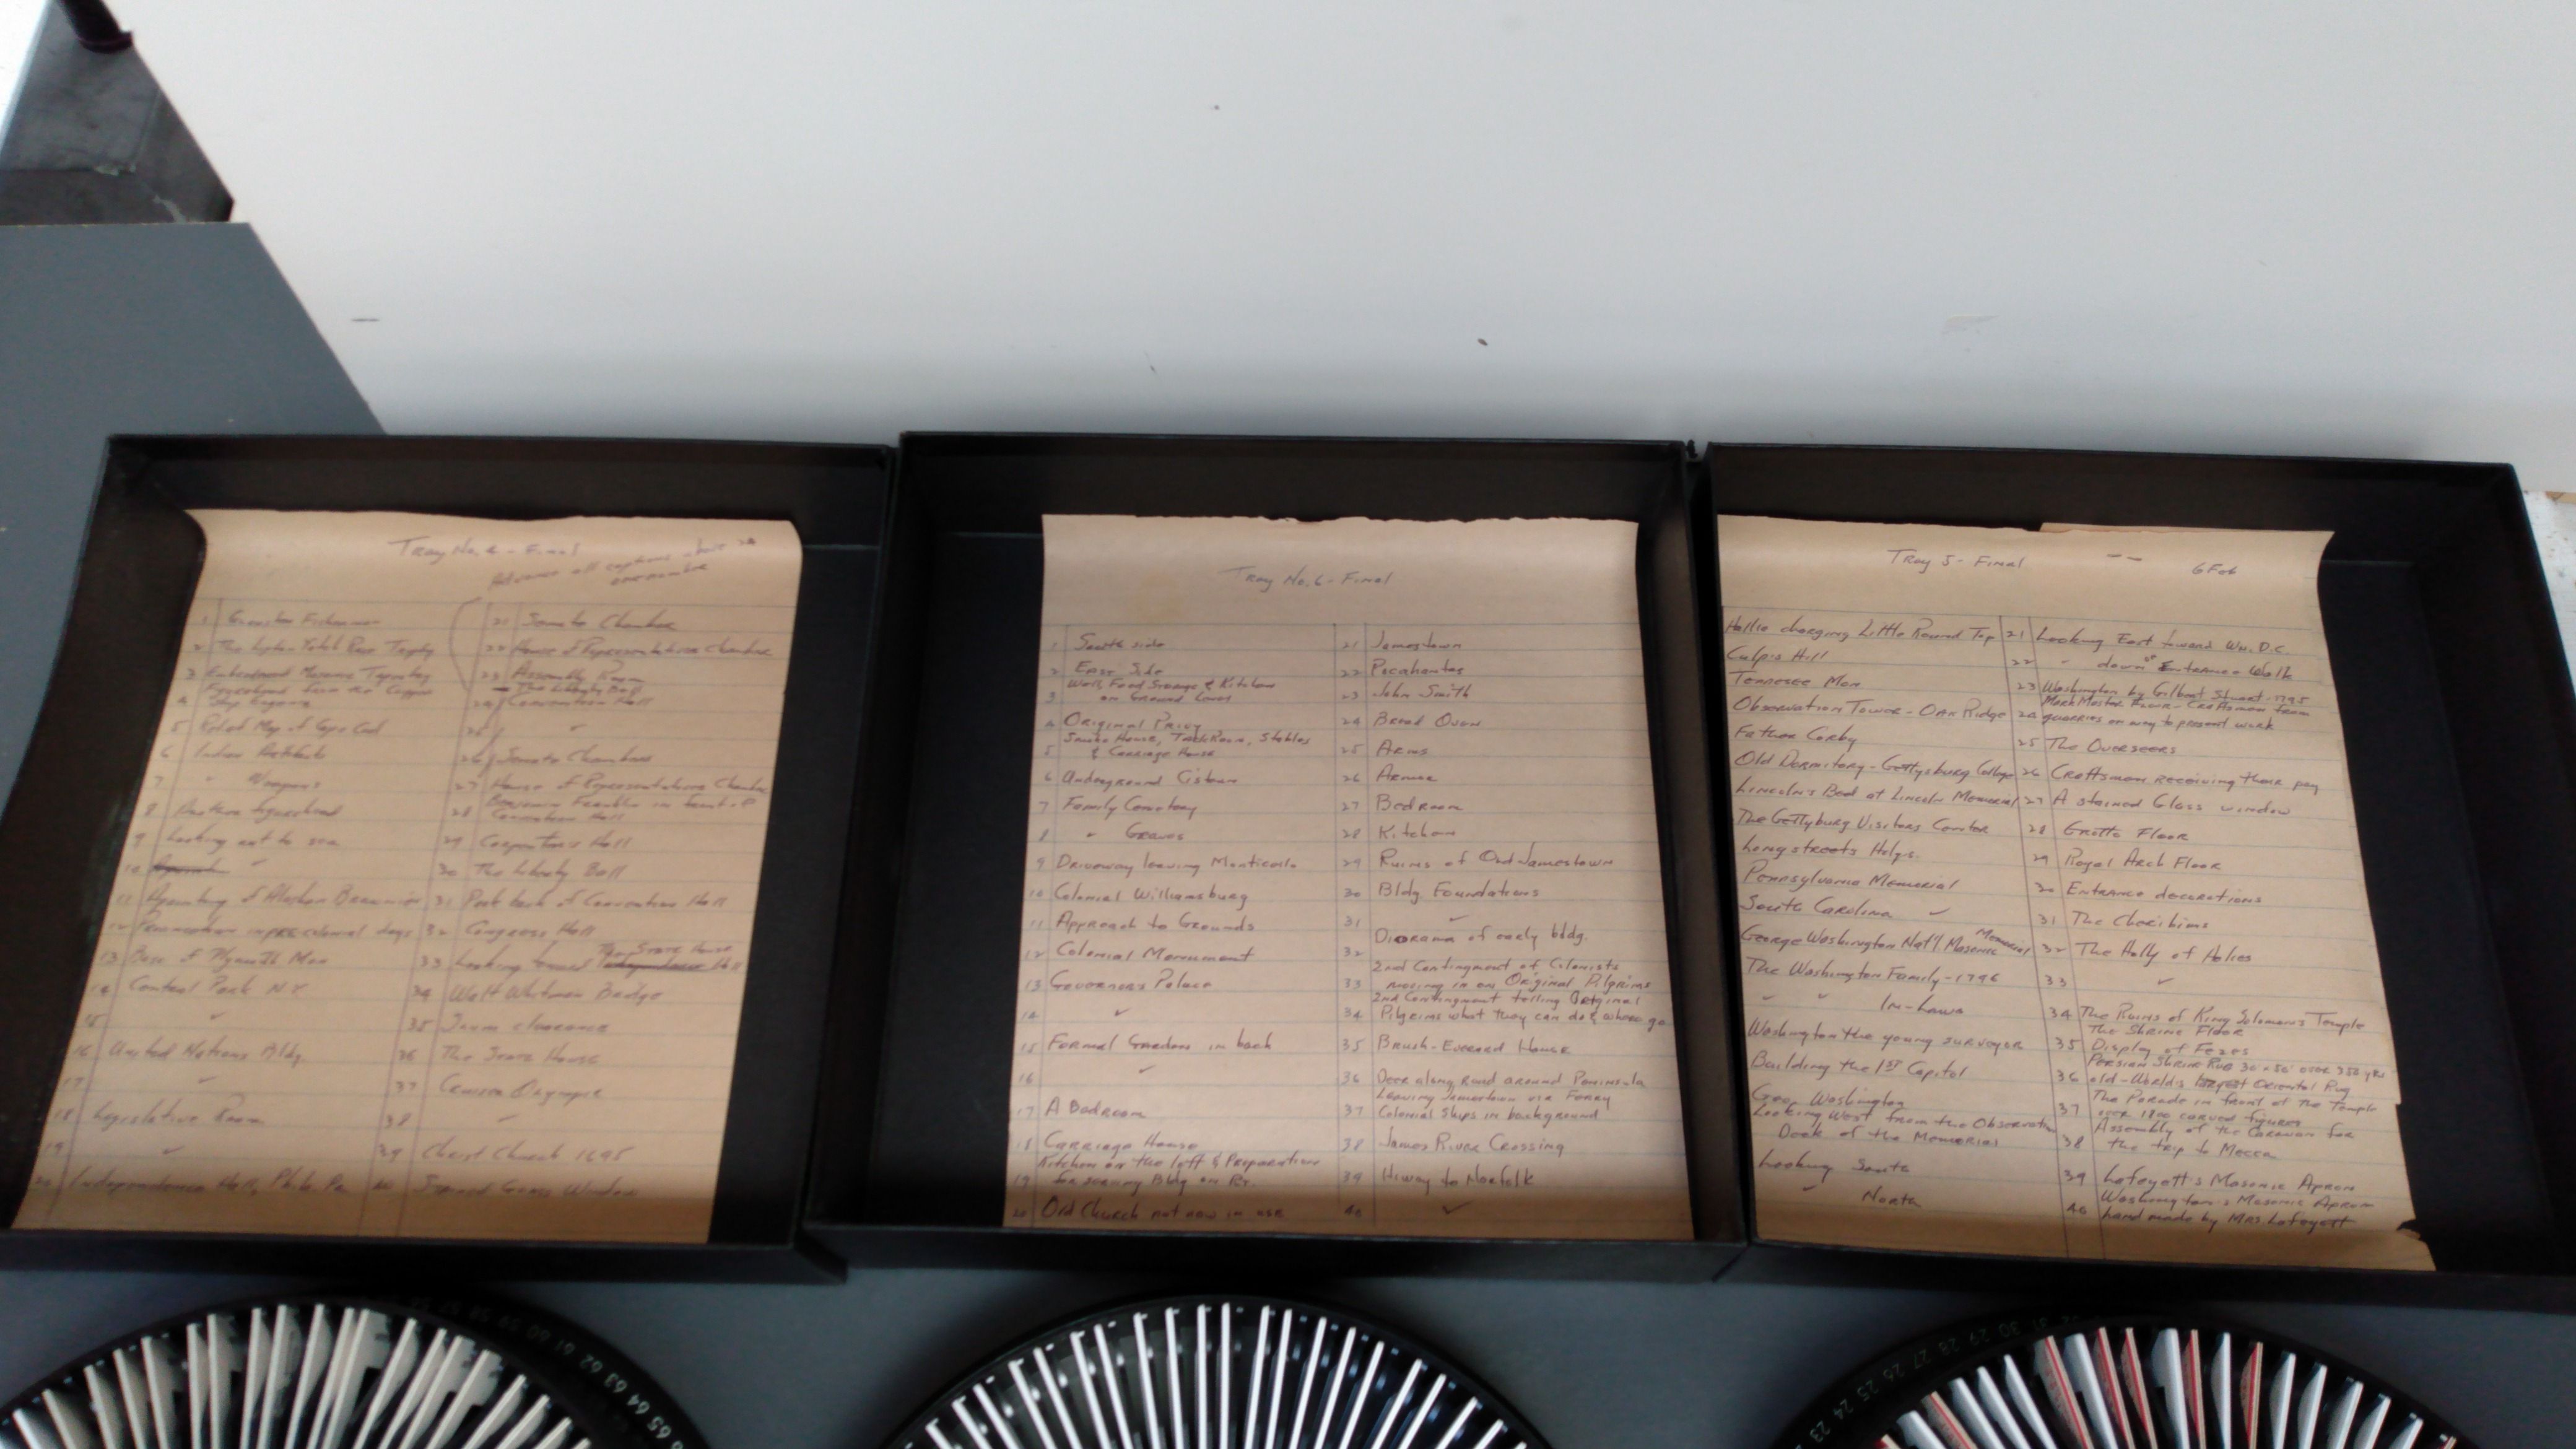 Tray No. 4 - Final
Advance all captions
one number
1 Gloucester Fisherman
2 The Lipton Yacht Race Trophy
3 Masonic Tapestry
4 Ship
5 Relief Map of Cape Cod
6 Indian Artifacts
7 " Weapons
8 figurehead
9 Looking out to sea
10 "
11 of Alaskan
12 in pre colonial days
13 Base of Plymouth
14 Central Park N.Y.
15 "
16 United Nations Bldg.
17 "
18 Legislative Room
19 "
20 Independence Hall, Phila. Pa.
21 Senate Chamber
22 House of Representatives Chamber
23 Assembly Room
The Liberty Bell
24 Convention Hall
25 "
26 Senate Chambers
27 House of Representatives Chamber
Benjamin Franklin in front of
28 Convention Hall
29 Carpenters Hall
30 The Liberty Bell
31 Park back of Convention Hall
32 Congress Hall
The State House
33 Looking toward Independence Hall
34 Walt Whitman Bridge
35 clearance
36 The State House
37 Cruiser Olympia
38 "
39 Christ Church 1695
40 Stained Glass Window
Tray No. 6 - Final
1 South side
2 East Side
Well, Food Storage & Kitchen
3 on Ground Level
4 Original Privy
Smoke House, Tack Room, Stables
5 & Carriage House
6 Underground Cistern
7 Family Cemetery
8 " Graves
9 Driveway leaving Monticello
10 Colonial Williamsburg
11 Approach to Grounds
12 Colonial Monument
13 Governors Palace
14 "
15 Formal Gardens in back
16 "
17 A Bedroom
18 Carriage House
Kitchen on the left & Preparation
19 for serving Bldg on Rt.
20 Old Church not now in use
21 Jamestown
22 Pocahontas
23 John Smith
24 Bread Oven
25 Arms
26 Armor
27 Bedroom
28 Kitchen
29 Ruins of Old Jamestown
30 Bldg. Foundations
31 "
Diorama of early bldg.
32
2nd Contingment of Colonists
33 moving in on Original Pilgrims
2nd Contingment telling Original
34 Pilgrims what they can do & where go
35 Brush-Everard House
36 Deer along road around Peninsula
Leaving Jamestown via Ferry
37 Colonial Ships in background
38 James River Crossing
39 Hiway to Norfolk
40 "
Tray 5 - Final -- 6 Feb
Hallie charging Little Round Top
Culp's Hill
Tennessee Mon
Observation Tower - Oak Ridge
Father Corby
Old Dormitory - Gettysburg College
Lincoln's Bed at Lincoln Memorial
The Gettyburg Visitors Center
Longstreets Hdqs.
Pennsylvania Memorial
South Carolina "
George Washington Nat'l Masonic Memorial
The Washington Family - 1796
" " In-Laws
Washington the young surveyor
Building the 1st Capitol
Geo. Washington
Looking West from the Observation
Deck of the Memorial
Looking South
" North
21 Looking East toward Wn. D.C.
22 " down Entrance Walk
23 Washington by Gilbert Stuart - 1795
Mark Master Room - Craftsman from
24 quarries on way to present work
25 The Overseers
26 Craftsman receiving their pay
27 A stained Glass window
28 Grotto Floor
29 Royal Arch Floor
30 Entrance decorations
31 The Cheribims
32 The Holly of Holies
33 "
34 The Ruins of King Solomon's Temple
The Shrine Floor
35 Display of Fezes
Persian Shrine Rug 30 x 50' over 350 yrs
36 old - World's largest Oriental Rug
The Parade in front of the Temple
37 over 1800 carved figures
Assembly of the Caravan for
38 the trip to Mecca
39 Lafayett's Masonic Apron
Washington's Masonic Apron
40 hand made by Mrs Lafayett
57 58 59 60 61 62 63 64 65
23 24 25 26 27 28 29 30 31